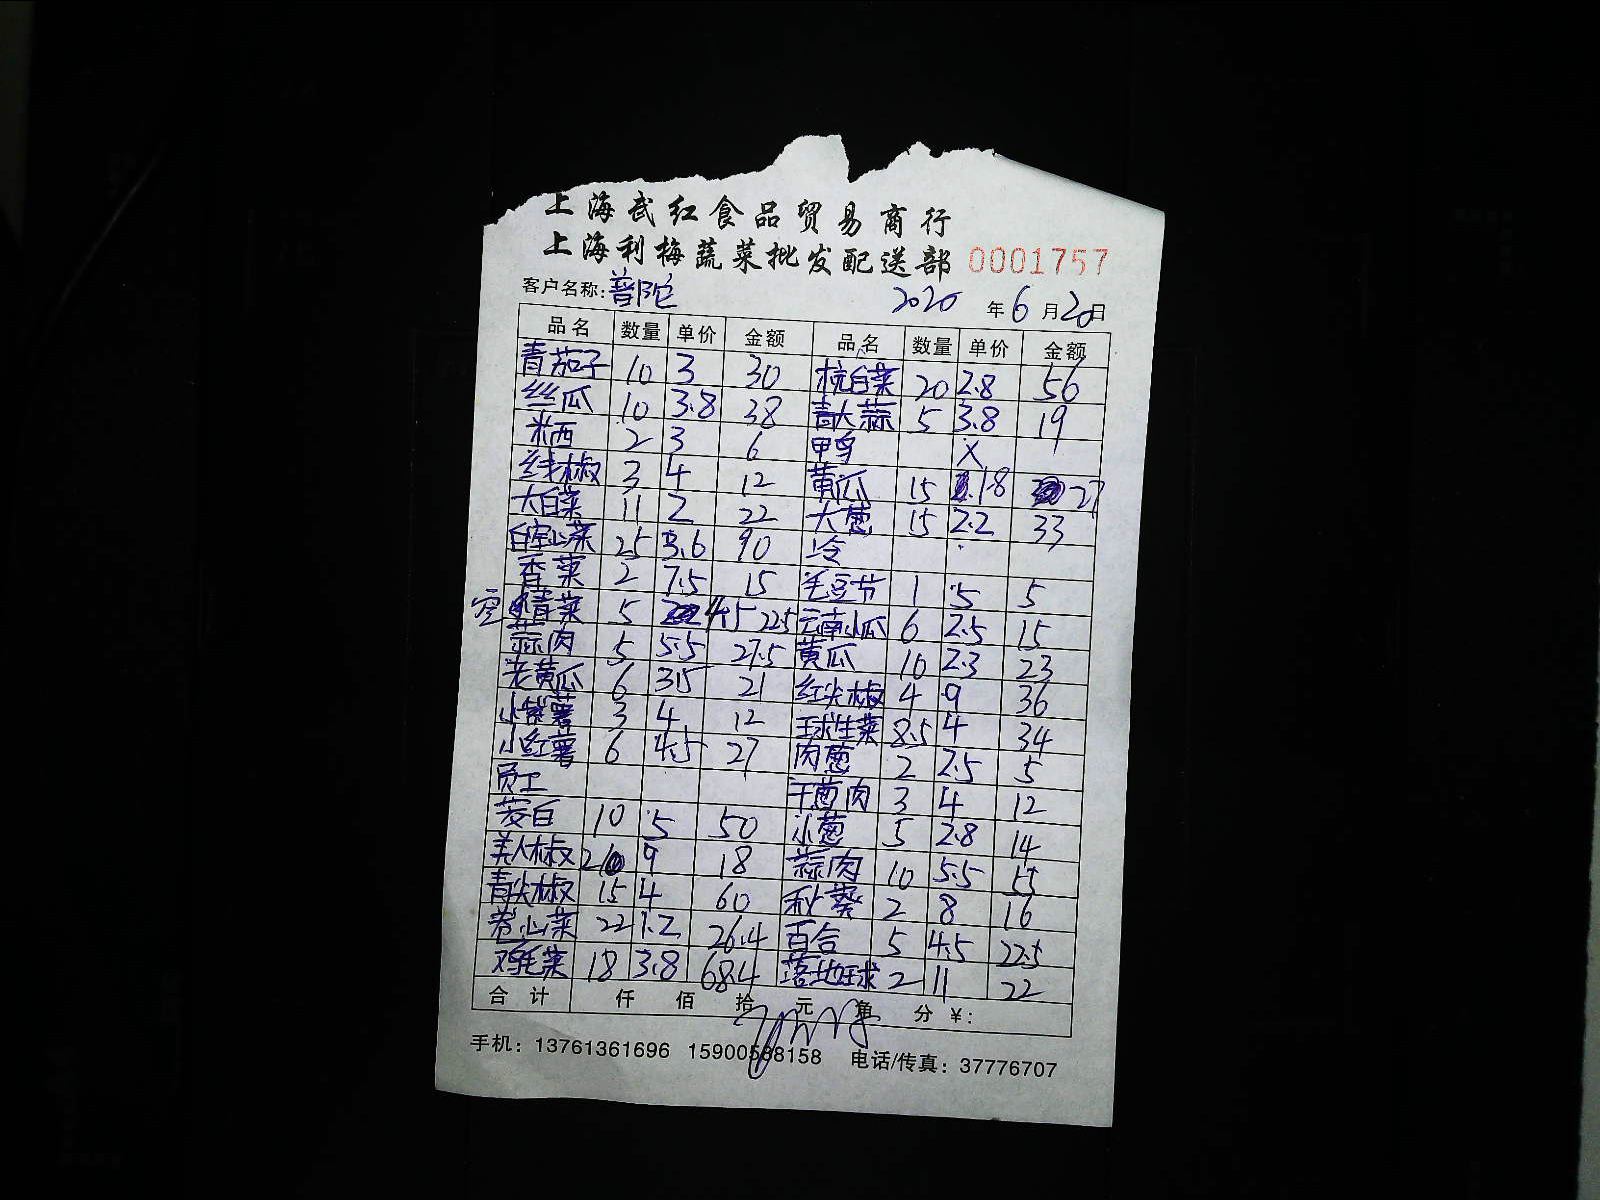 上海武红食品贸易商行
上海利梅蔬菜批发配送部 0001757
客户名称:普陀 2020 年6月20日
品名 数量 单价 金额 品名 数量 单价 金额
青茄子 10 3 30 杭白菜 20 2.8 56
丝瓜 10 3.8 38 青大蒜 5 3.8 19
米西 2 3 6 甲鸟 X
线椒 3 4 12 黄瓜 15 1.8 27
大白菜 11 2 22 大葱 15 2.2 33
白空心菜 25 3.6 90 冷
香菜 2 7.5 15 毛豆节 1 5 5
空 青菜 5 4.5 22.5 云南小瓜 6 2.5 15
蒜肉 5 5.5 27.5 黄瓜 10 2.3 23
老黄瓜 6 3.5 21 红尖椒 4 9 36
小紫薯 3 4 12 球生菜 8.5 4 34
小红薯 6 4.5 27 肉葱 2 2.5 5
员工 干葱肉 3 4 12
茭白 10 5 50 小葱 5 2.8 14
美人椒 2 9 18 蒜肉 10 5.5 55
青尖椒 15 4 60 秋葵 2 8 16
卷心菜 22 1.2 26.4 百合 5 4.5 22.5
鸡毛菜 18 3.8 68.4 落地球 2 11 22
合计 仟 佰 拾 元 角 分 ¥:
手机:13761361696 15900588158 电话/传真:37776707